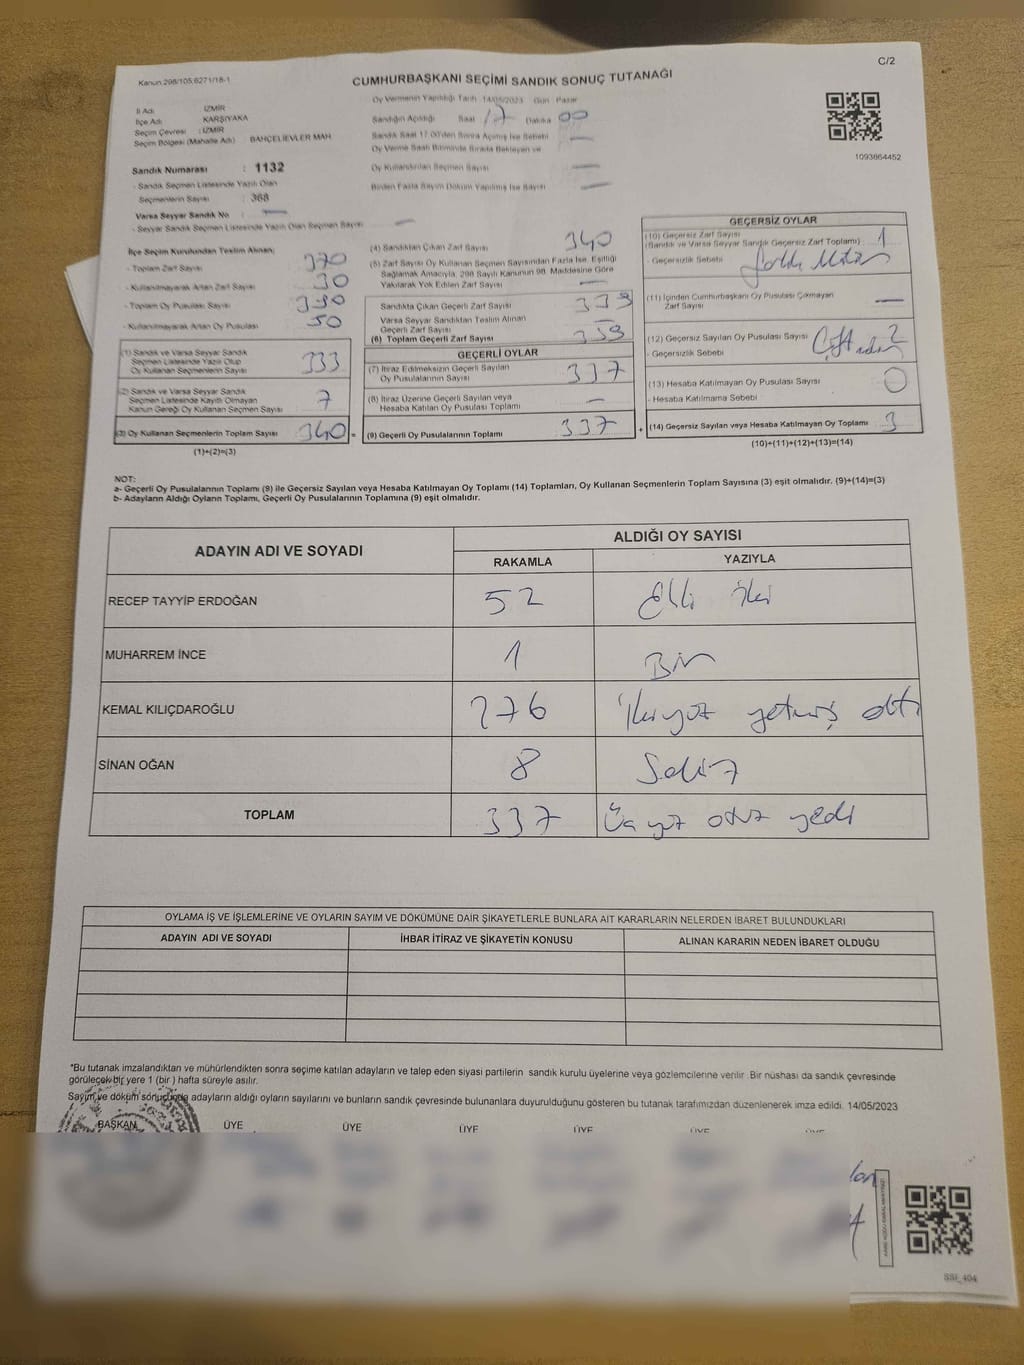 Kanun 298/105,6271/18-1
C/2
CUMHURBAŞKANI SEÇİMİ SANDIK SONUÇ TUTANAĞI
İl Adı İZMİR
İlçe Adı KARŞIYAKA
Seçim Çevresi : İZMİR
Seçim Bölgesi (Mahalle Adı) BAHÇELİEVLER MAH.
Oy Vermenin Yapıldığı Tarih 14/05/2023 Gün Pazar
Sandığın Açıldığı Saat 17 Dakika 00
Sandık Saat 17.00'den Sonra Açılmış İse Sebebi —
Oy Verme Saati Bitiminde Sırada Bekleyen ve
Oy Kullandırılan Seçmen Sayısı —
Birden Fazla Sayım Döküm Yapılmış İse Sayısı —
1093864452
Sandık Numarası : 1132
- Sandık Seçmen Listesinde Yazılı Olan
Seçmenlerin Sayısı : 368
Varsa Seyyar Sandık No —
- Seyyar Sandık Seçmen Listesinde Yazılı Olan Seçmen Sayısı —
İlçe Seçim Kurulundan Teslim Alınan;
- Toplam Zarf Sayısı 370
- Kullanılmayarak Artan Zarf Sayısı 30
- Toplam Oy Pusulası Sayısı 390
- Kullanılmayarak Artan Oy Pusulası 50
(1) Sandık ve Varsa Seyyar Sandık
Seçmen Listesinde Yazılı Olup
Oy Kullanan Seçmenlerin Sayısı 333
(2) Sandık ve Varsa Seyyar Sandık
Seçmen Listesinde Kayıtlı Olmayan
Kanun Gereği Oy Kullanan Seçmen Sayısı 7
(3) Oy Kullanan Seçmenlerin Toplam Sayısı 340 =
(1)+(2)=(3)
(4) Sandıktan Çıkan Zarf Sayısı 340
(5) Zarf Sayısı Oy Kullanan Seçmen Sayısından Fazla İse, Eşitliği
Sağlamak Amacıyla, 298 Sayılı Kanunun 98. Maddesine Göre
Yakılarak Yok Edilen Zarf Sayısı —
Sandıkta Çıkan Geçerli Zarf Sayısı 339
Varsa Seyyar Sandıktan Teslim Alınan
Geçerli Zarf Sayısı
(6) Toplam Geçerli Zarf Sayısı 339
GEÇERLİ OYLAR
(7) İtiraz Edilmeksizin Geçerli Sayılan
Oy Pusulalarının Sayısı 337
(8) İtiraz Üzerine Geçerli Sayılan veya
Hesaba Katılan Oy Pusulaları Toplamı —
(9) Geçerli Oy Pusulalarının Toplamı 337 +
GEÇERSİZ OYLAR
(10) Geçersiz Zarf Sayısı
(Sandık ve Varsa Seyyar Sandık Geçersiz Zarf Toplamı) 1
- Geçersizlik Sebebi
(11) İçinden Cumhurbaşkanı Oy Pusulası Çıkmayan
Zarf Sayısı —
(12) Geçersiz Sayılan Oy Pusulası Sayısı 2
- Geçersizlik Sebebi Çift
(13) Hesaba Katılmayan Oy Pusulası Sayısı 0
- Hesaba Katılmama Sebebi
(14) Geçersiz Sayılan veya Hesaba Katılmayan Oy Toplamı 3
(10)+(11)+(12)+(13)=(14)
NOT:
a- Geçerli Oy Pusulalarının Toplamı (9) ile Geçersiz Sayılan veya Hesaba Katılmayan Oy Toplamı (14) Toplamları, Oy Kullanan Seçmenlerin Toplam Sayısına (3) eşit olmalıdır. (9)+(14)=(3)
b- Adayların Aldığı Oyların Toplamı, Geçerli Oy Pusulalarının Toplamına (9) eşit olmalıdır.
ADAYIN ADI VE SOYADI
ALDIĞI OY SAYISI
RAKAMLA YAZIYLA
RECEP TAYYİP ERDOĞAN 52 Elli iki
MUHARREM İNCE 1 Bir
KEMAL KILIÇDAROĞLU 276 İkiyüz yetmiş altı
SİNAN OĞAN 8 Sekiz
TOPLAM 337 Üç yüz otuz yedi
OYLAMA İŞ VE İŞLEMLERİNE VE OYLARIN SAYIM VE DÖKÜMÜNE DAİR ŞİKAYETLERLE BUNLARA AİT KARARLARIN NELERDEN İBARET BULUNDUKLARI
ADAYIN ADI VE SOYADI İHBAR İTİRAZ VE ŞİKAYETİN KONUSU ALINAN KARARIN NEDEN İBARET OLDUĞU
*Bu tutanak imzalandıktan ve mühürlendikten sonra seçime katılan adayların ve talep eden siyasi partilerin sandık kurulu üyelerine veya gözlemcilerine verilir. Bir nüshası da sandık çevresinde
görülecek bir yere 1 (bir) hafta süreyle asılır.
Sayım ve döküm sonucunda adayların aldığı oyların sayılarını ve bunların sandık çevresinde bulunanlara duyurulduğunu gösteren bu tutanak tarafımızdan düzenlenerek imza edildi. 14/05/2023
BAŞKAN ÜYE ÜYE ÜYE ÜYE ÜYE ÜYE
SSI_404